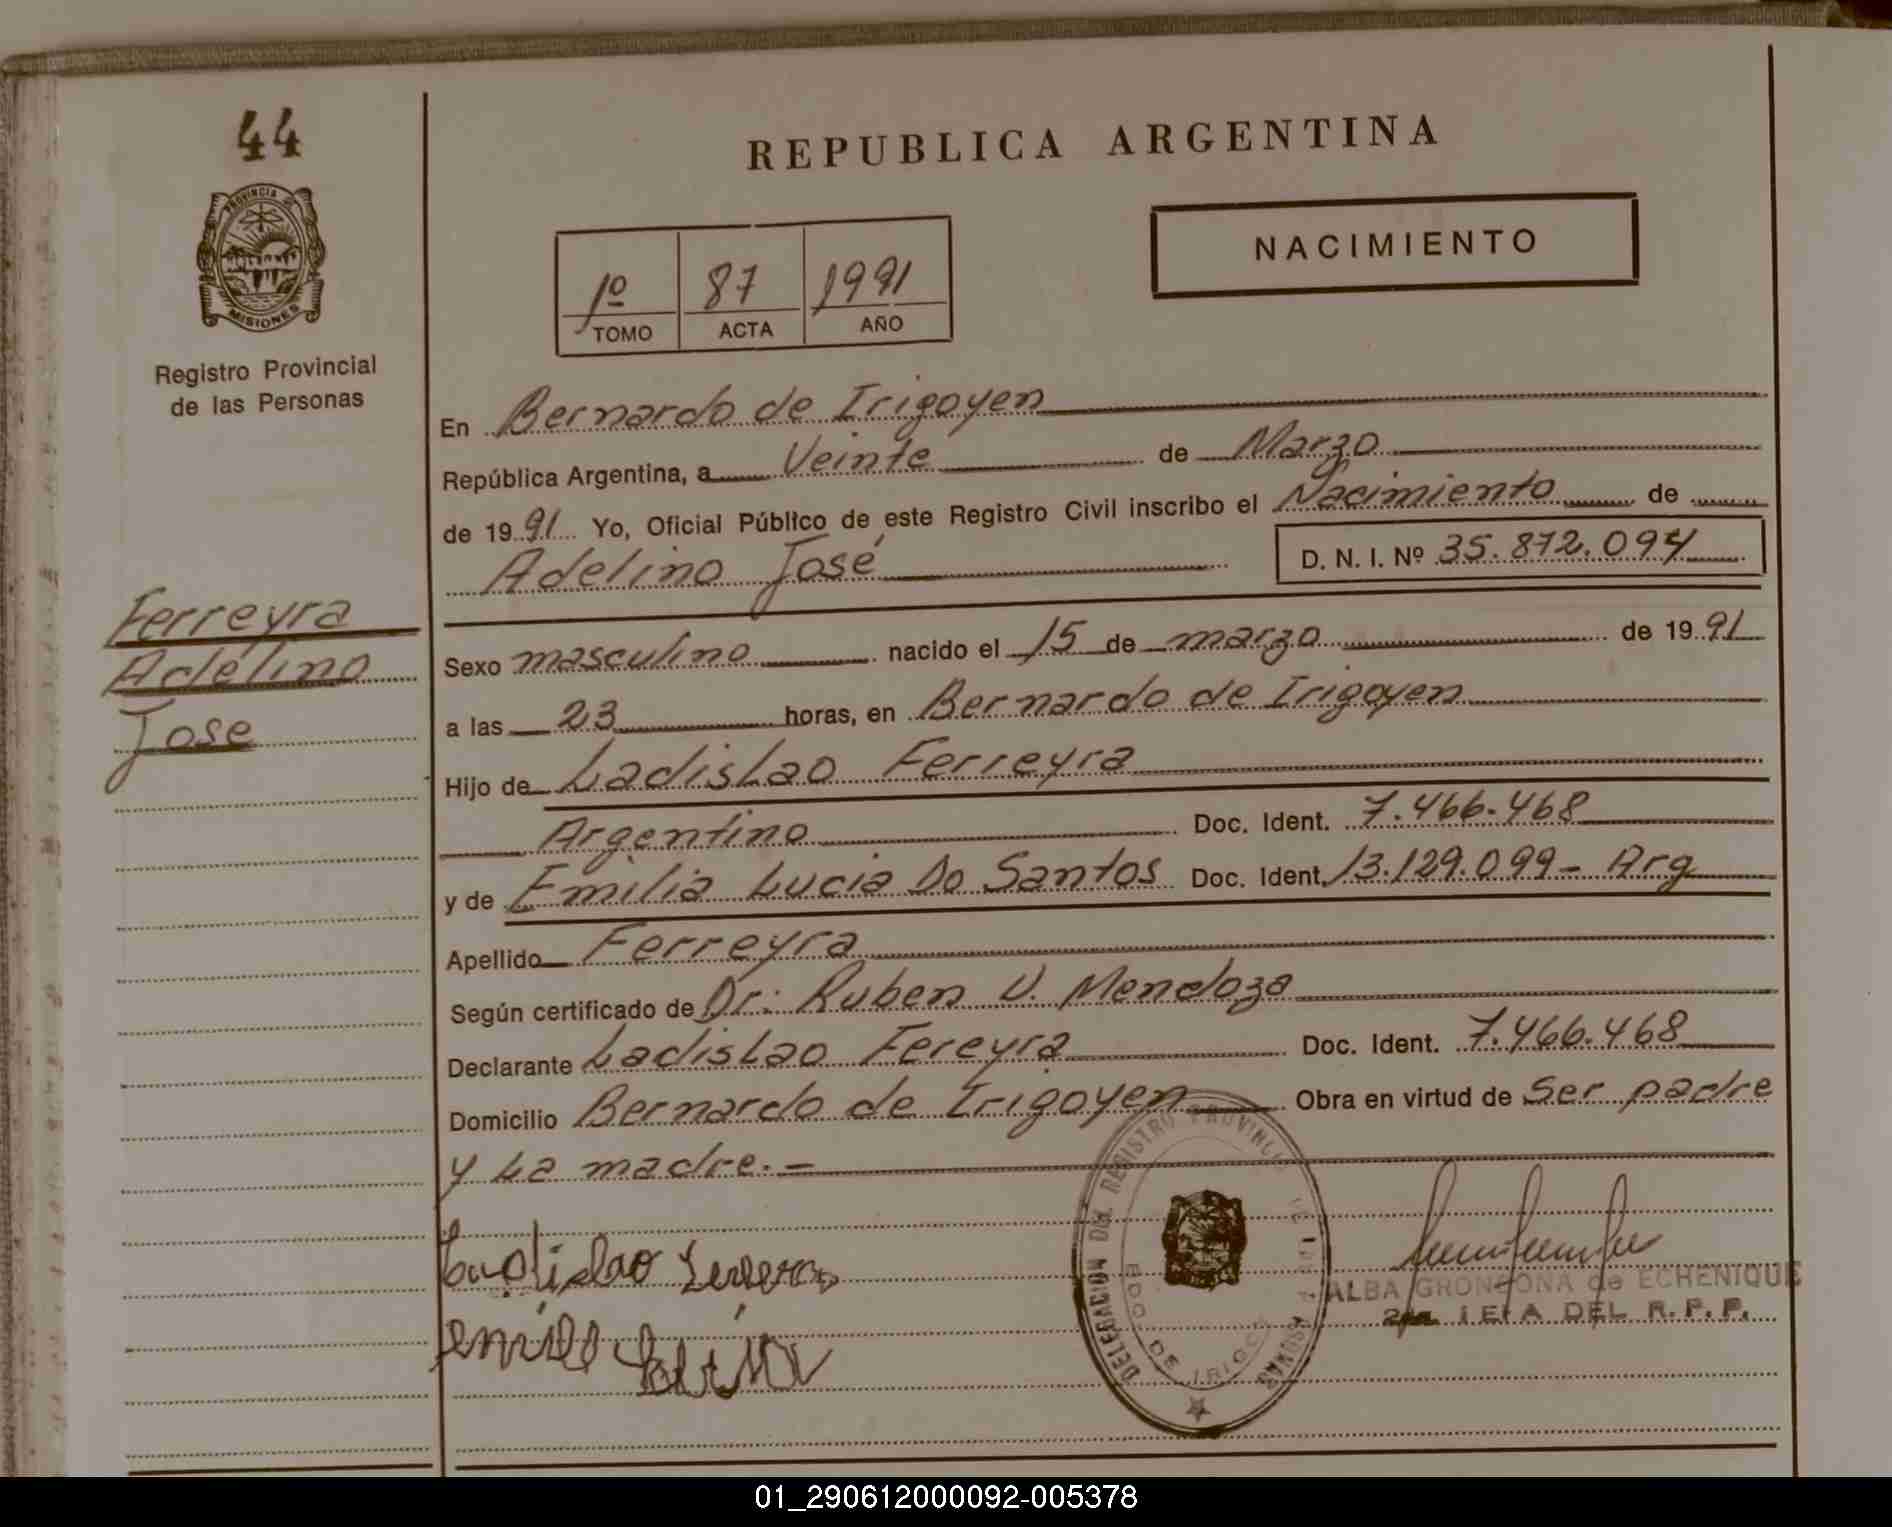 44
PROVINCIA DE
MISIONES
Registro Provincial
de las Personas
Ferreyra
Adelino
Jose
REPUBLICA ARGENTINA
NACIMIENTO
1º 87 1991
TOMO ACTA AÑO
En Bernardo de Irigoyen
República Argentina, a Veinte de Marzo
de 1991 Yo, Oficial Público de este Registro Civil inscribo el Nacimiento de
Adelino José D. N. I. Nº 35.872.094
Sexo masculino nacido el 15 de marzo de 1991
a las 23 horas, en Bernardo de Irigoyen
Hijo de Ladislao Ferreyra
Argentino Doc. Ident. 7.466.468
y de Emilia Lucia Do Santos Doc. Ident. 13.129.099- Arg
Apellido Ferreyra
Según certificado de Dr: Ruben V. Mendoza
Declarante Ladislao Fereyra Doc. Ident. 7.466.468
Domicilio Bernardo de Irigoyen Obra en virtud de Ser padre
y La madre.-
DELEGACION DEL REGISTRO PROVINCIAL DE LAS PERSONAS
BDO. DE IRIGOYEN
ALBA GRONDONA de ECHENIQUE
2da JEFA DEL R.P.P.
01_290612000092-005378